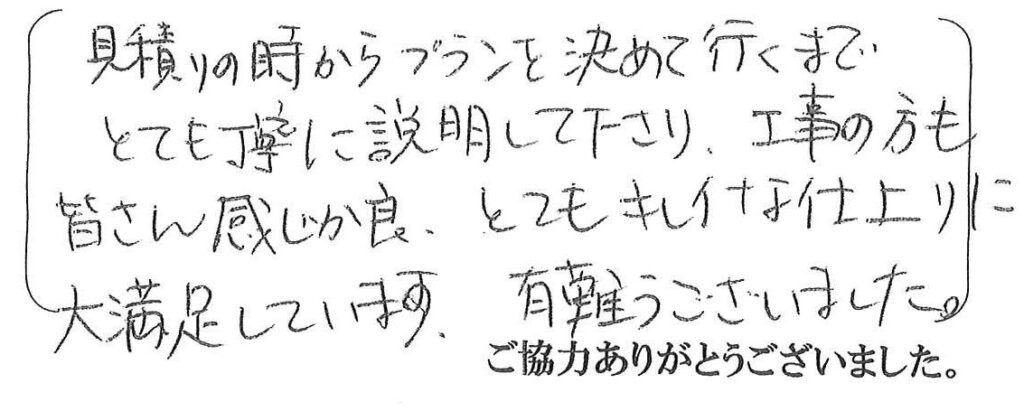 見積りの時からプランを決めて行くまで
とても丁寧に説明して下さり、工事の方も
皆さん感じが良、とてもキレイな仕上りに
大満足しています、有難うございました。
ご協力ありがとうございました。